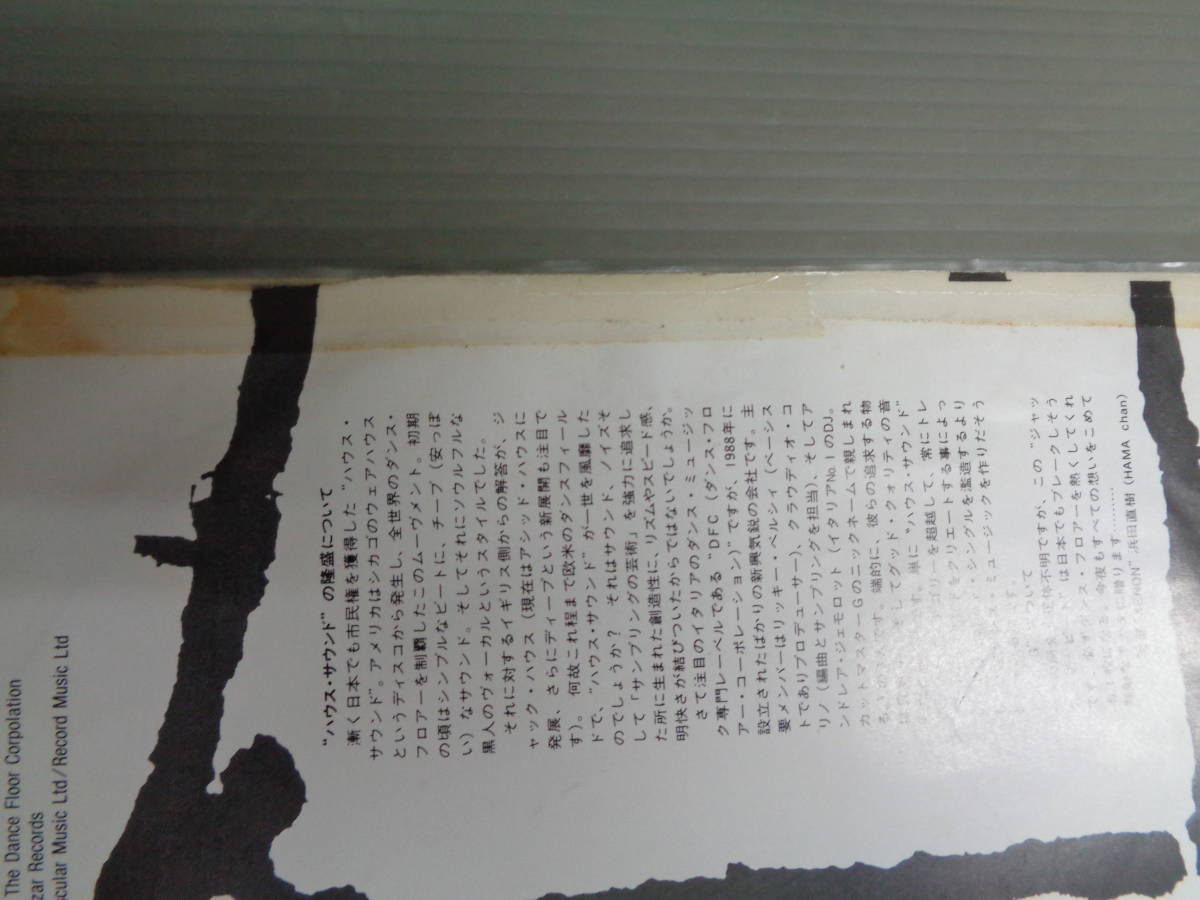 The Dance Floor Corpolation
zar Records
scular Music Ltd/Record Music Ltd
"ハウス・サウンド" の隆盛について
漸く日本でも市民権を獲得した "ハウス・
サウンド"。アメリカはシカゴのウェアハウス
というディスコから発生し、全世界のダンス・
フロアーを制覇したこのムーヴメント。初期
の頃はシンプルなビートに、チープ（安っぽ
い）なサウンド。そしてそれにソウルフルな
黒人のヴォーカルというスタイルでした。
それに対するイギリス側からの解答が、ジ
ャック・ハウス（現在はアシッド・ハウスに
発展、さらにディープという新展開も注目で
す）。 何故これ程まで欧米のダンスフィール
ドで、"ハウス・サウンド" が一世を風靡した
のでしょうか？ それはサウンド、ノイズそ
して「サンプリングの芸術」を強力に追求し
た所に生まれた創造性に、リズムやスピード感、
明快さが結びついたからではないでしょうか。
さて注目のイタリアのダンス・ミュージッ
ク専門レーベルである "DFC（ダンス・フロ
アー・コーポレーション）"ですが、1988年に
設立されたばかりの新興気鋭の会社です。主
要メンバーはリッキー・ペルシィ（ベーシス
トでありプロデューサー）、クラウディオ・コ
リノ（編曲とサンプリングを担当）、そしてア
ンドレア・ジェモロット（イタリアNo.1のDJ。
カットマスターGのニックネームで親しまれ
る
です。端的に、彼らの追求する物
そしてグッド・クォリティの音
す。単に "ハウス・サウンド"
ゴリーを超越して、常にトレ
をクリエートする事によっ
ド・シングルを濫造するより
ス・ミュージックを作りだそう
す。
について
G"
正体不明ですが、この "ジャッ
ビート" は日本でもブレークしそう
です。必ず
ス・フロアーを熱くしてくれ
今夜もすべての想いをこめて
に贈ります………
XENON" 浜田直樹 (HAMA chan)